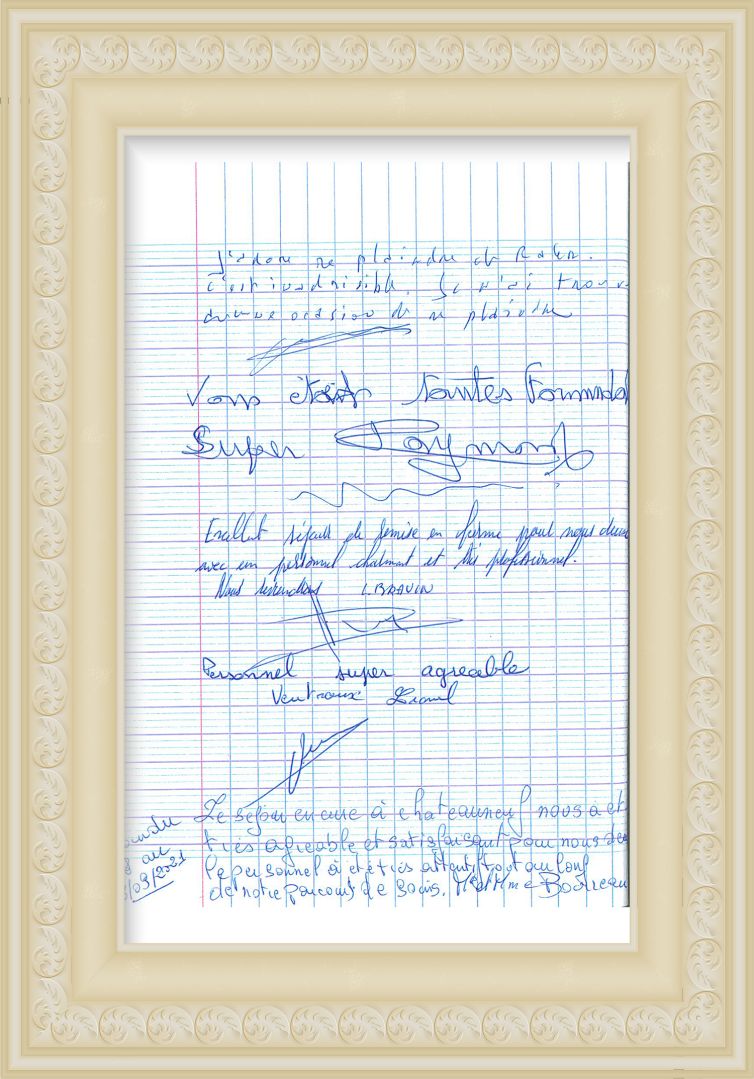 J'adore me plaindre et Raler.
c'est inadmissible. Je n'ai trouv
aucune occasion de me plaindre
Vous êtes toutes Formidab
Super Raymond
Excellent séjour de remise en forme pour nous deux
avec un personnel charmant et très professionnel.
Nous reviendrons L. BRAVIN
Personnel super agreable
Ventroux Lionel
Le sejour en cure à chateauneuf nous a ét
très agréable et satisfaisant pour nous deu
le personnel à été très attentif tout au long
de notre parcours de soins. Mr et Mme Boireau
au
/03/2021